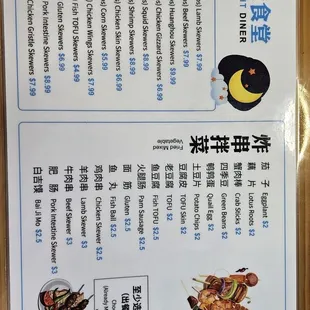 食堂
T DINER
s) Lamb Skewers $7.99
s) Beef Skewers $7.99
s) Huanghou Skewers $9.99
s) Chicken Gizzard Skewers $6.99
s) Squid Skewers $8.99
s) Shrimp Skewers $6.99
s) Chicken Skin Skewers
s) Corn Skewers $5.99
s) Chicken Wings Skewers $7.99
Fish TOFU Skewers $4.99
Gluten Skewers $6.99
Pork Intestine Skewers $8.99
Chicken Gristle Skewers $7.99
炸串拌菜
Fried Mixed
Vegetable
茄子 Eggplant $2
藕片 Lotus Roots $2
蟹肉棒 Crab Sticks $2
四季豆 Green Beans $2
鹌鹑蛋 Quail Egg $2
土豆片 Potato Chips $2
豆腐皮 TOFU Skin $2
老豆腐 TOFU $2
鱼豆腐 Fish TOFU $2
火腿肠 Pam Sausage $2.5
面筋 Gluten $2.5
鱼丸 Fish Ball $2.5
鸡肉串 Chicken Skewer $2.5
羊肉串 Lamb Skewer $3
牛肉串 Beef Skewer $3
肥肠 Pork Intestine Skewer $3
白吉馍 Bai Ji Mo $2.5
至少选
(出餐
Cho
(Already M